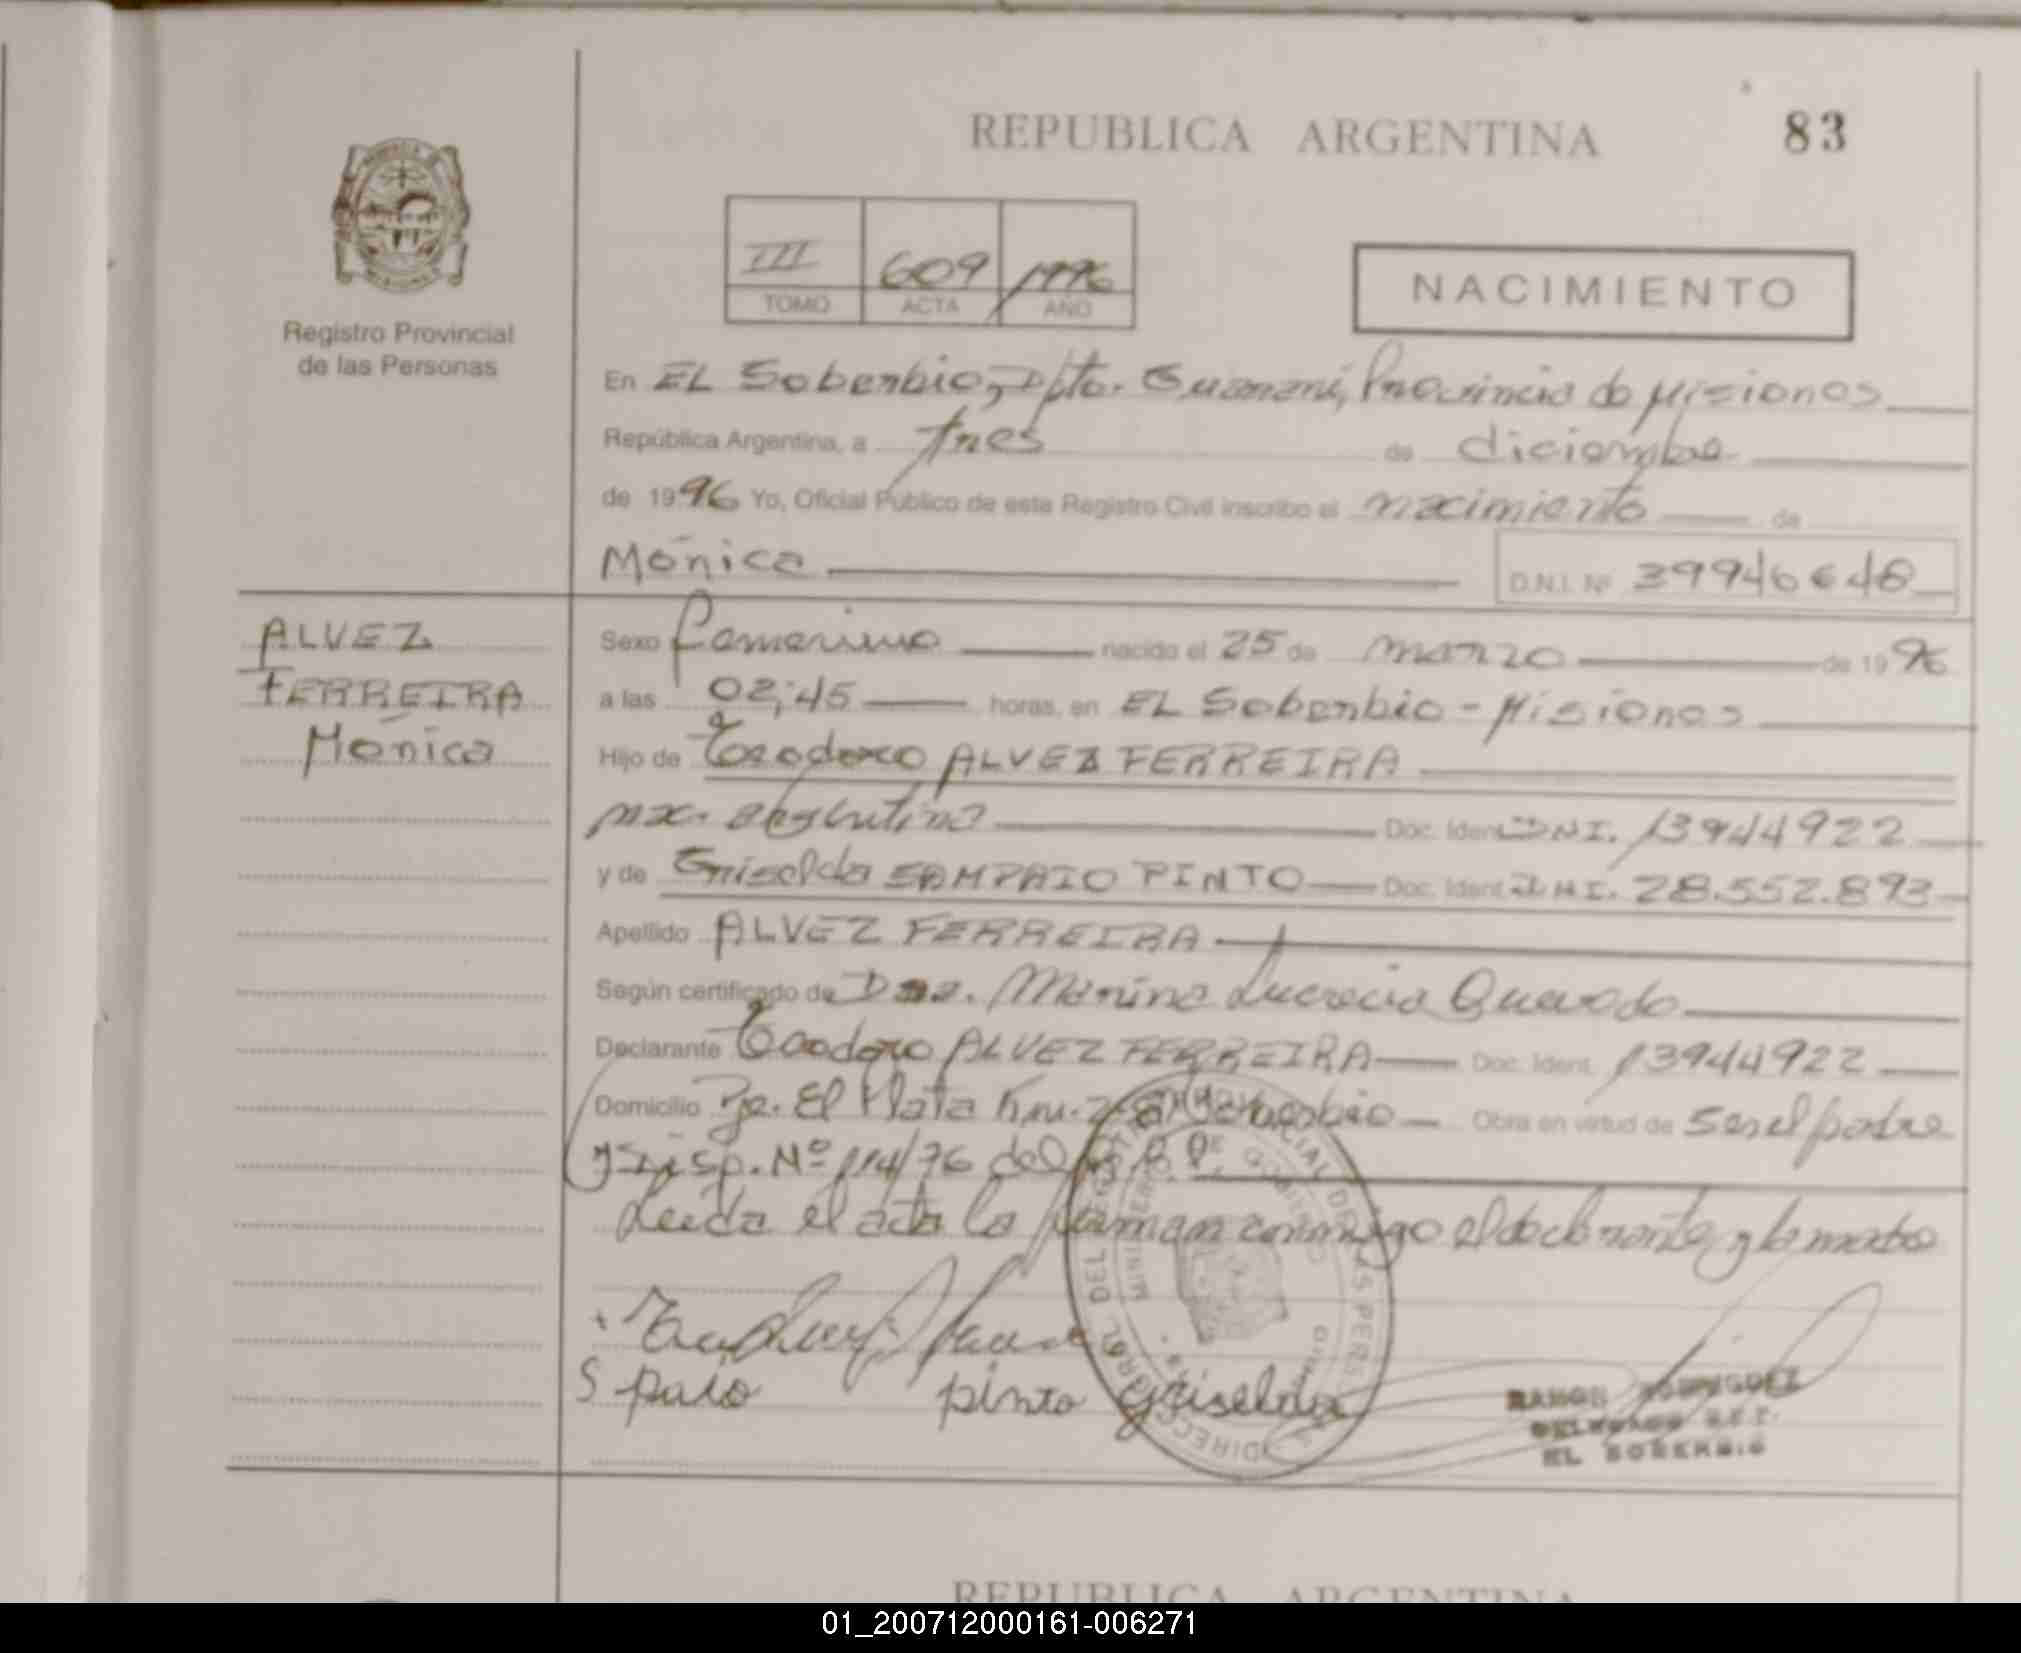 REPUBLICA ARGENTINA 83
III 609 1996
TOMO ACTA AÑO
NACIMIENTO
Registro Provincial
de las Personas
En EL Soberbio, Dpto. Guaraní, Provincia de Misiones
República Argentina, a tres de diciembre
de 1996 Yo, Oficial Público de este Registro Civil inscribo el nacimiento de
Mónica D.N.I. Nº 39946648
ALVEZ
FERREIRA
Mónica
Sexo femenino nacido el 25 de marzo de 1996
a las 02:45 horas, en EL Soberbio - Misiones
Hijo de Teodoro ALVEZ FERREIRA
nac. argentina Doc. Ident. DNI. 13944922
y de Griselda SAMPAIO PINTO Doc. Ident. DNI. 28.552.893
Apellido ALVEZ FERREIRA
Según certificado de Dra. Marina Lucrecia Quevedo
Declarante Teodoro ALVEZ FERREIRA Doc. Ident. 13944922
Domicilio Pje. El Plata Km. Soberbio Obra en virtud de ser el padre
y Disp. Nº 114/76 del R.P.P.
Leída el acta la firman conmigo el declarante y la madre
S paio pinto Griselda
RAMON RODRIGUEZ
DELEGADO
EL SOBERBIO
REPUBLICA ARGENTINA
01_200712000161-006271